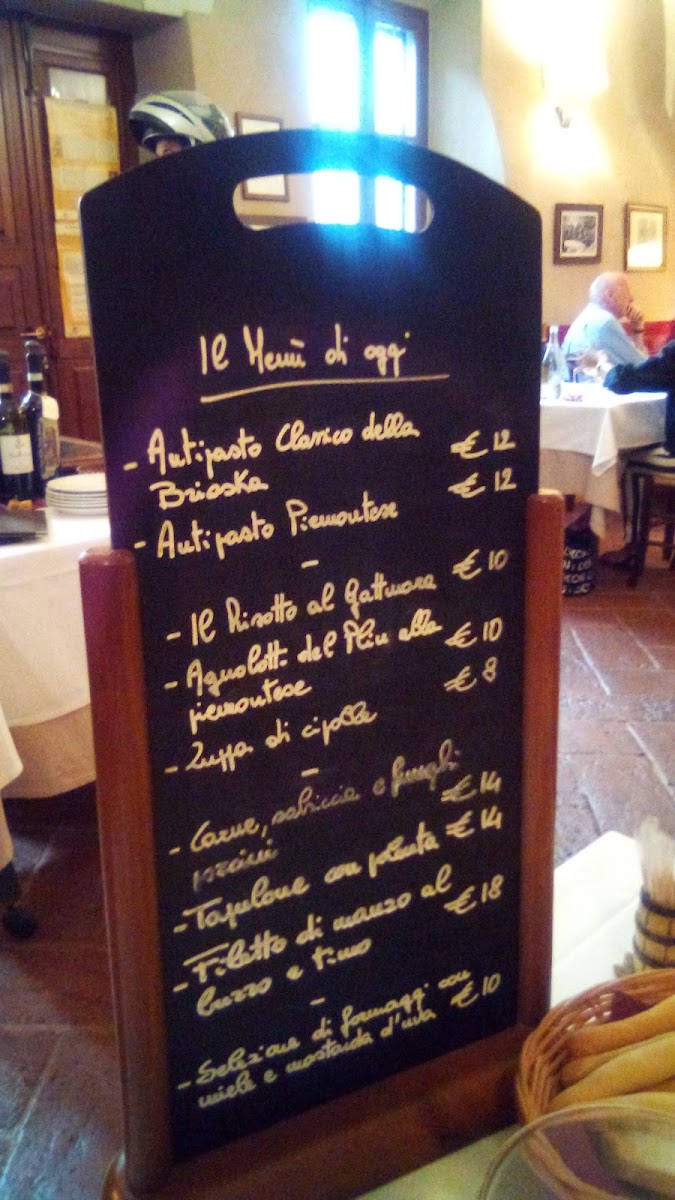 Il Menù di oggi
- Antipasto Classico della
Brioska € 12
- Antipasto Piemontese € 12
-
- Il Risotto al Gattinara € 10
- Agnolotti del Plin alla
piemontese € 10
- Zuppa di cipolle € 8
-
- Carne, salsiccia e funghi
porcini € 14
- Tapulone con polenta € 14
- Filetto di manzo al
burro e timo € 18
-
- Selezione di formaggi con
miele e mostarda d'uva € 10